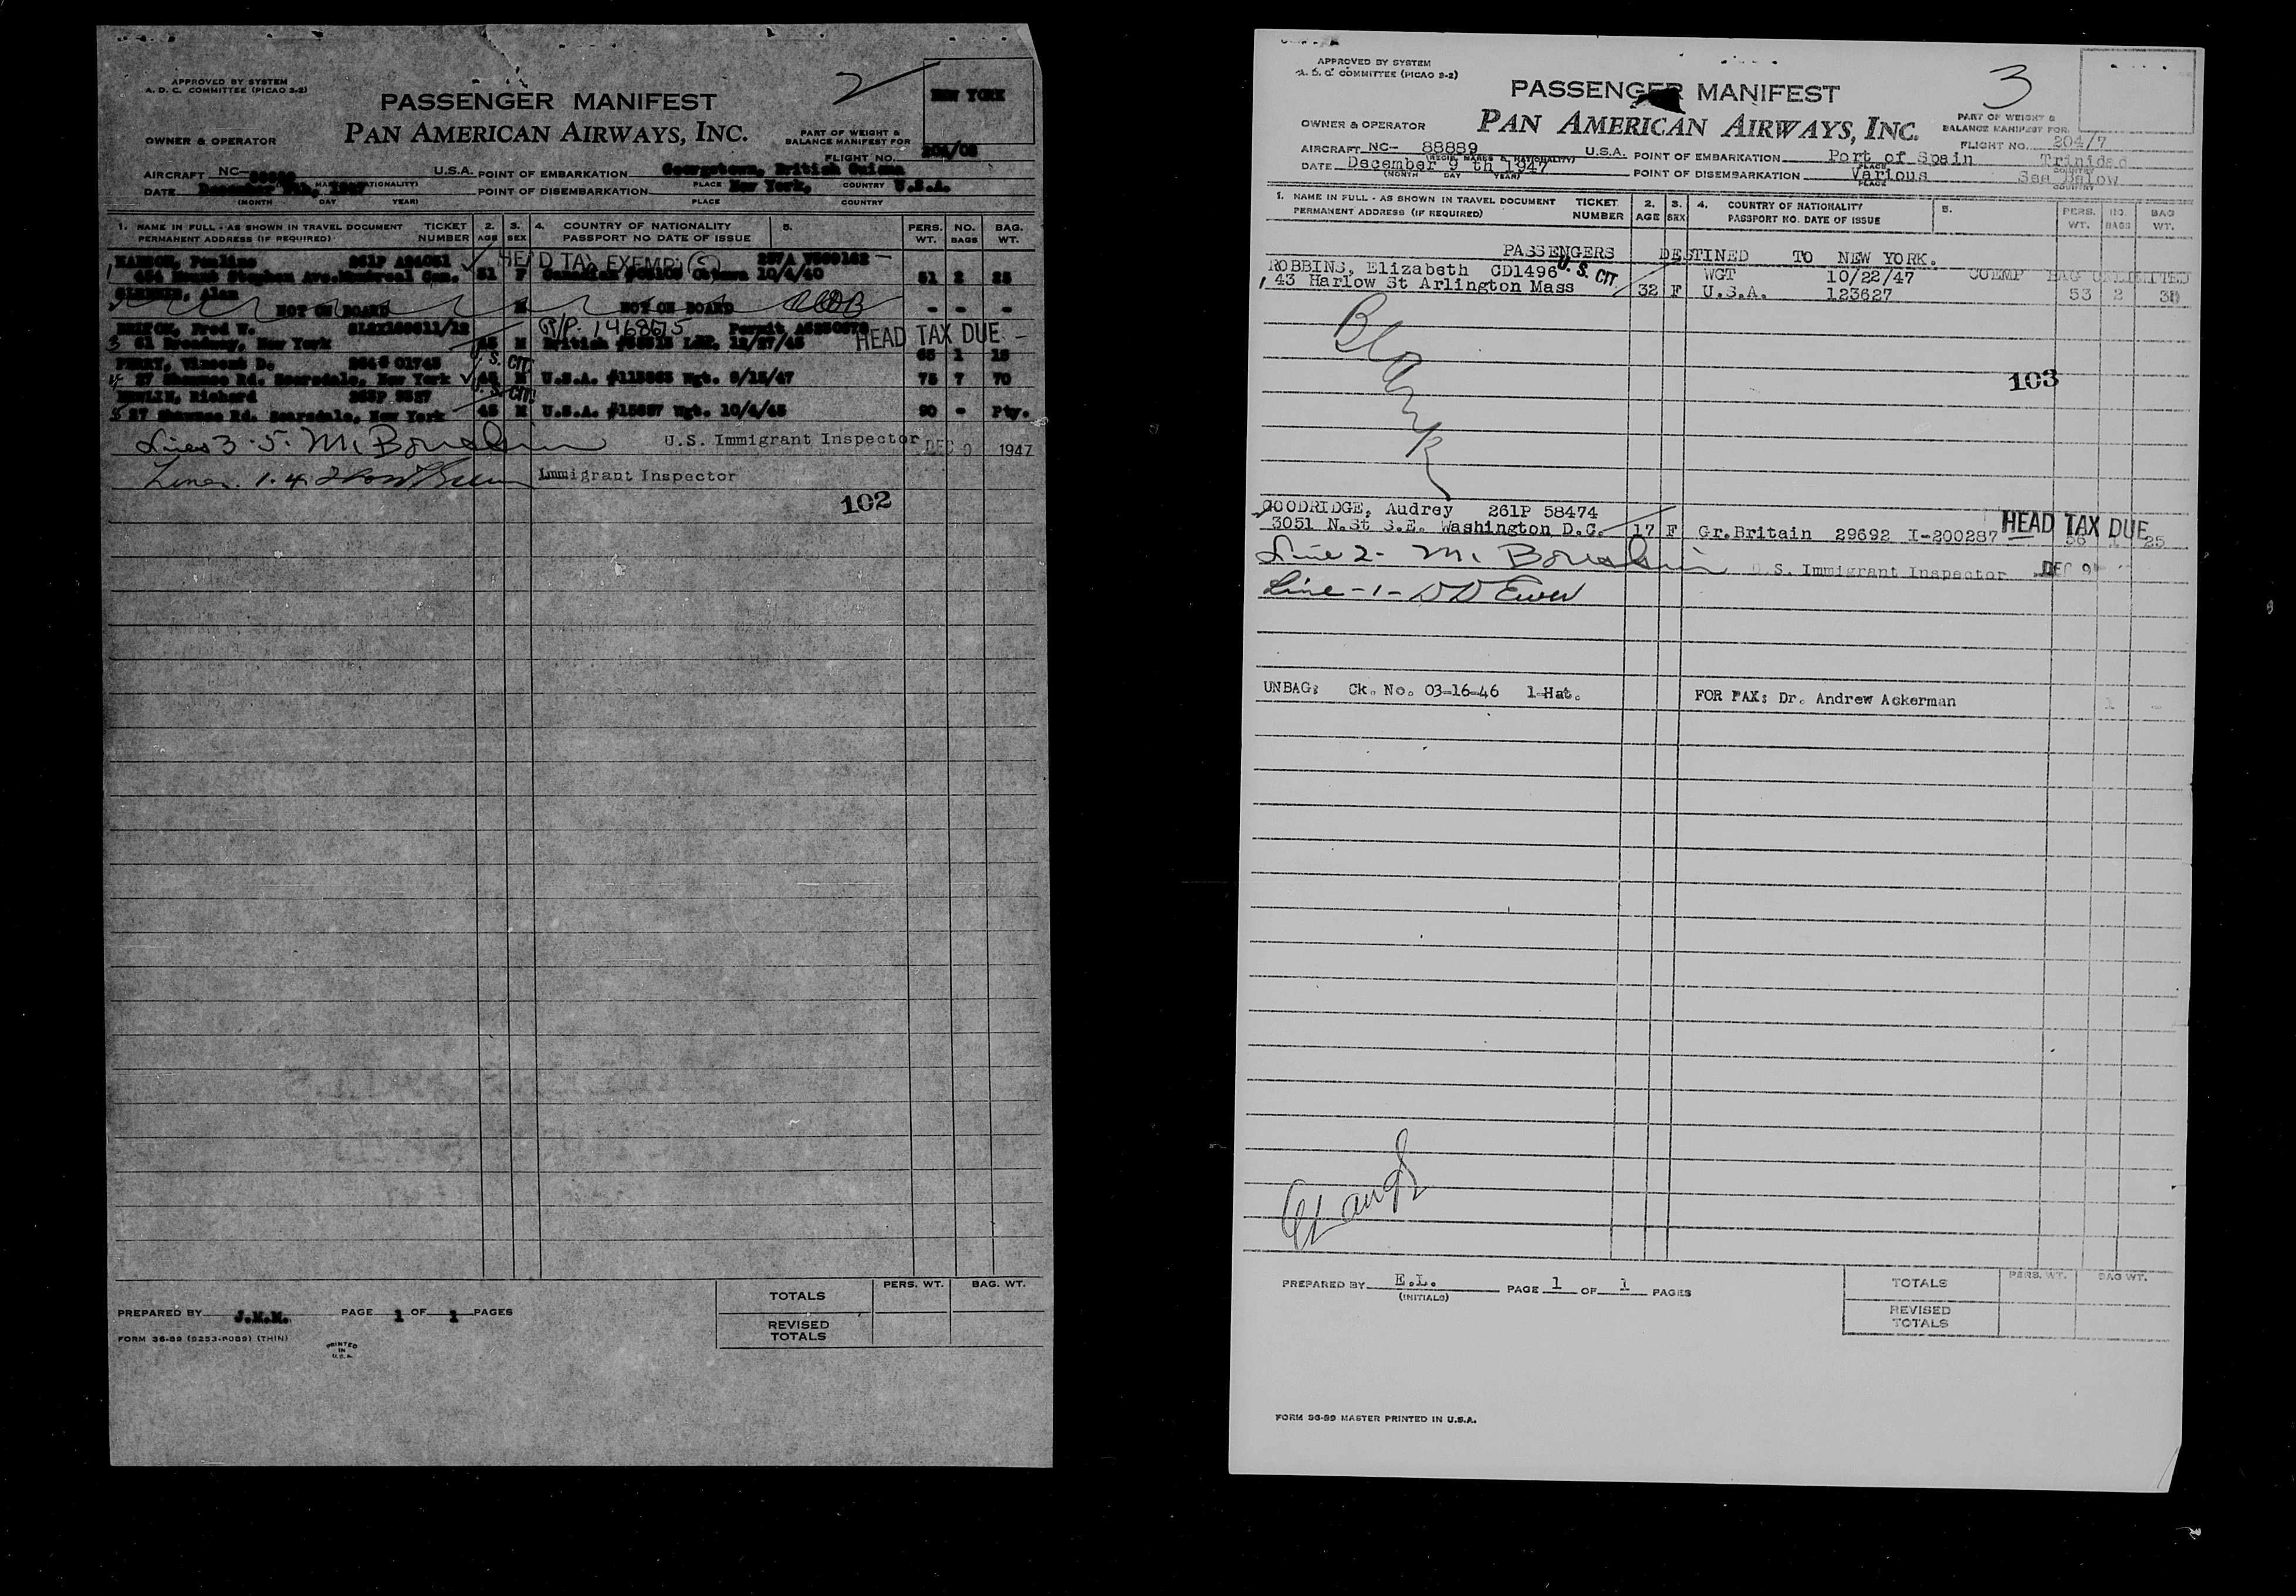 2
APPROVED BY SYSTEM
A. D. C. COMMITTEE (PICAO 2-2)
NEW YORK
PASSENGER MANIFEST
OWNER & OPERATOR
PAN AMERICAN AIRWAYS, INC.
PART OF WEIGHT &
BALANCE MANIFEST FOR
FLIGHT NO.
AIRCRAFT NC- U.S.A. POINT OF EMBARKATION Georgetown, British Guiana
DATE December POINT OF DISEMBARKATION New York, U.S.A.
(MONTH DAY YEAR) PLACE COUNTRY
1. NAME IN FULL - AS SHOWN IN TRAVEL DOCUMENT TICKET 2. 3. 4. COUNTRY OF NATIONALITY 5. PERS. NO. BAG.
PERMANENT ADDRESS (IF REQUIRED) NUMBER AGE SEX PASSPORT NO DATE OF ISSUE WT. BAGS WT.
Pauline HEAD TAX EXEMPT
1 Mount Stephen Ave. Montreal Can. 51 F Canadian Ottawa 10/4/40 51 2 25
Alan
NOT ON BOARD M NOT ON BOARD - - -
Fred W. R/P. 1468675 Permit HEAD TAX DUE
3 61 Broadway, New York M British 12/27/45 65 1 15
Vincent D. U.S. CIT.
4 27 Shawnee Rd. Scarsdale, New York M U.S.A. Wgt. 75 7 70
Richard U.S. CIT.
5 27 Shawnee Rd. Scarsdale, New York 45 M U.S.A. Wgt. 10/4/45 90 - Pty.
Lines 3 - 5 - U.S. Immigrant Inspector DEC 9 1947
Lines 1-4 Immigrant Inspector
102
TOTALS PERS. WT. BAG. WT.
PREPARED BY J.M.M. PAGE 1 OF 1 PAGES
REVISED
TOTALS
FORM 36-89 (THIN)
PRINTED
IN
U.S.A.
3
APPROVED BY SYSTEM
A. D. C. COMMITTEE (PICAO 2-2)
PASSENGER MANIFEST
OWNER & OPERATOR
PAN AMERICAN AIRWAYS, INC.
PART OF WEIGHT &
BALANCE MANIFEST FOR
FLIGHT NO. 204/7
AIRCRAFT NC- 88889 U.S.A. POINT OF EMBARKATION Port of Spain Trinidad
DATE December 9 th 1947 POINT OF DISEMBARKATION Various See Below
(MONTH DAY YEAR) PLACE COUNTRY
1. NAME IN FULL - AS SHOWN IN TRAVEL DOCUMENT TICKET 2. 3. 4. COUNTRY OF NATIONALITY 5. PERS. NO. BAG
PERMANENT ADDRESS (IF REQUIRED) NUMBER AGE SEX PASSPORT NO. DATE OF ISSUE WT. BAGS WT.
PASSENGERS DESTINED TO NEW YORK.
ROBBINS, Elizabeth CD1496 U.S. CIT. WGT 10/22/47 COEMP BAG UNLIMITED
1 43 Harlow St Arlington Mass 32 F U.S.A. 123627 53 2 38
Blank
103
GOODRIDGE, Audrey 261P 58474
3051 N.St S.E. Washington D.C. 17 F Gr.Britain 29692 I-200287 HEAD TAX DUE 56 1 25
Line 2 - U.S. Immigrant Inspector DEC 9
Line - 1 -
UNBAG; Ck. No. 03-16-46 1-Hat. FOR PAX; Dr. Andrew Ackerman 1 -
PREPARED BY E.L. PAGE 1 OF 1 PAGES
(INITIALS)
TOTALS PERS. WT. BAG WT.
REVISED
TOTALS
FORM 36-89 MASTER PRINTED IN U.S.A.